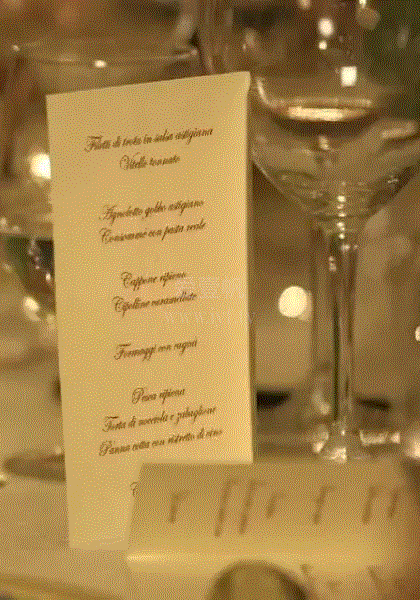 Filetti di trota in salsa astigiana
Vitello tonnato
Agnolotto gobbo astigiano
Consomme con pasta reale
Cappone ripieno
Cipolline caramellate
Formaggi con cugnà
Pesca ripiena
Torta di nocciola e zabaglione
Panna cotta con ristretto di vino